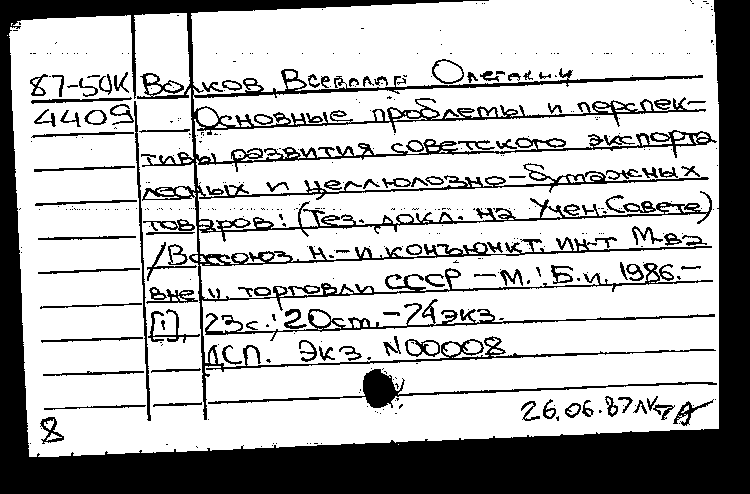 87-5ДК Волков, Всеволод Олегович
4409 Основные проблемы и перспек-
тивы развития советского экспорта
лесных и целлюлозно-бумажных
товаров: (Тез. докл. на Учен. Совете)
/Всесоюз. н.-и. конъюнкт. ин-т М-ва
внеш. торговли СССР - М.: Б.и., 1986.-
[1], 23с.; 20см. - 74экз.
ДСП. Экз. N00008.
26.06.87
8